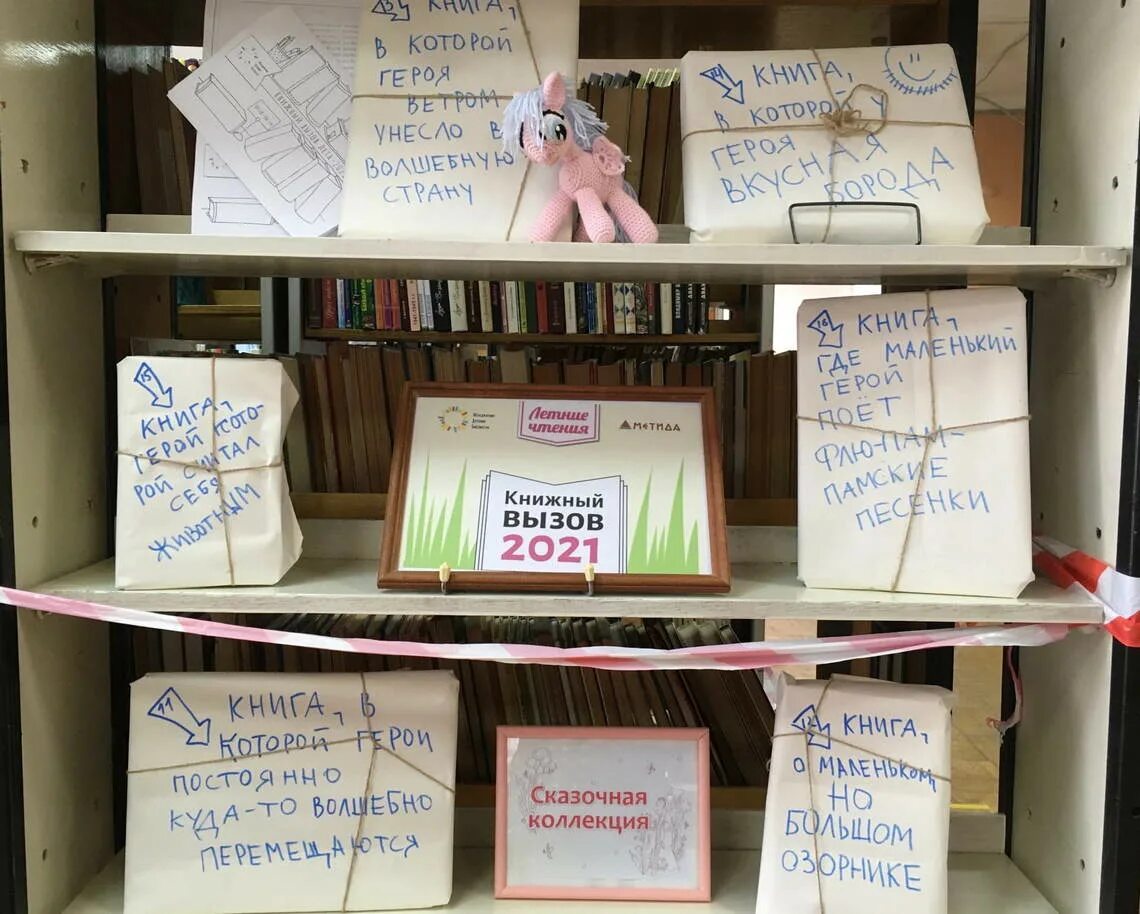 13 КНИГА,
В КОТОРОЙ
ГЕРОЯ
ВЕТРОМ
УНЕСЛО В
ВОЛШЕБНУЮ
СТРАНУ
14 КНИГА,
В КОТОРОЙ У
ГЕРОЯ
ВКУСНАЯ
БОРОДА
15
КНИГА,
ГЕРОЙ КОТО-
РОЙ СЧИТАЛ
СЕБЯ
ЖИВОТНЫМ
Летние
чтения
МЕТИДА
Книжный
ВЫЗОВ
2021
16 КНИГА,
ГДЕ МАЛЕНЬКИЙ
ГЕРОЙ
ПОЁТ
ФЛЮ-ПАМ-
ПАМСКИЕ
ПЕСЕНКИ
11 КНИГА, В
КОТОРОЙ ГЕРОИ
ПОСТОЯННО
КУДА-ТО ВОЛШЕБНО
ПЕРЕМЕЩАЮТСЯ
Сказочная
коллекция
12 КНИГА,
О МАЛЕНЬКОМ,
НО
БОЛЬШОМ
ОЗОРНИКЕ